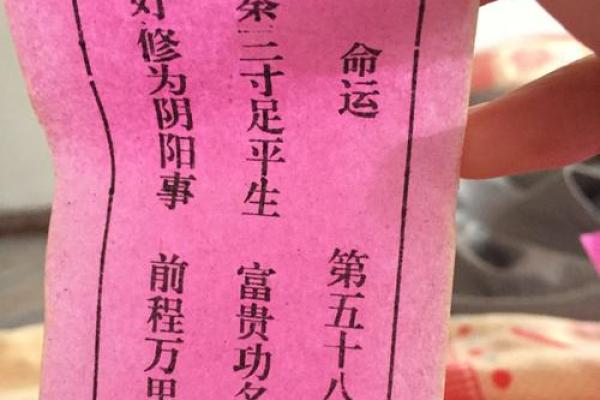 命运 第五十八
三寸足平生 富贵功名
好修为阴阳事 前程万里